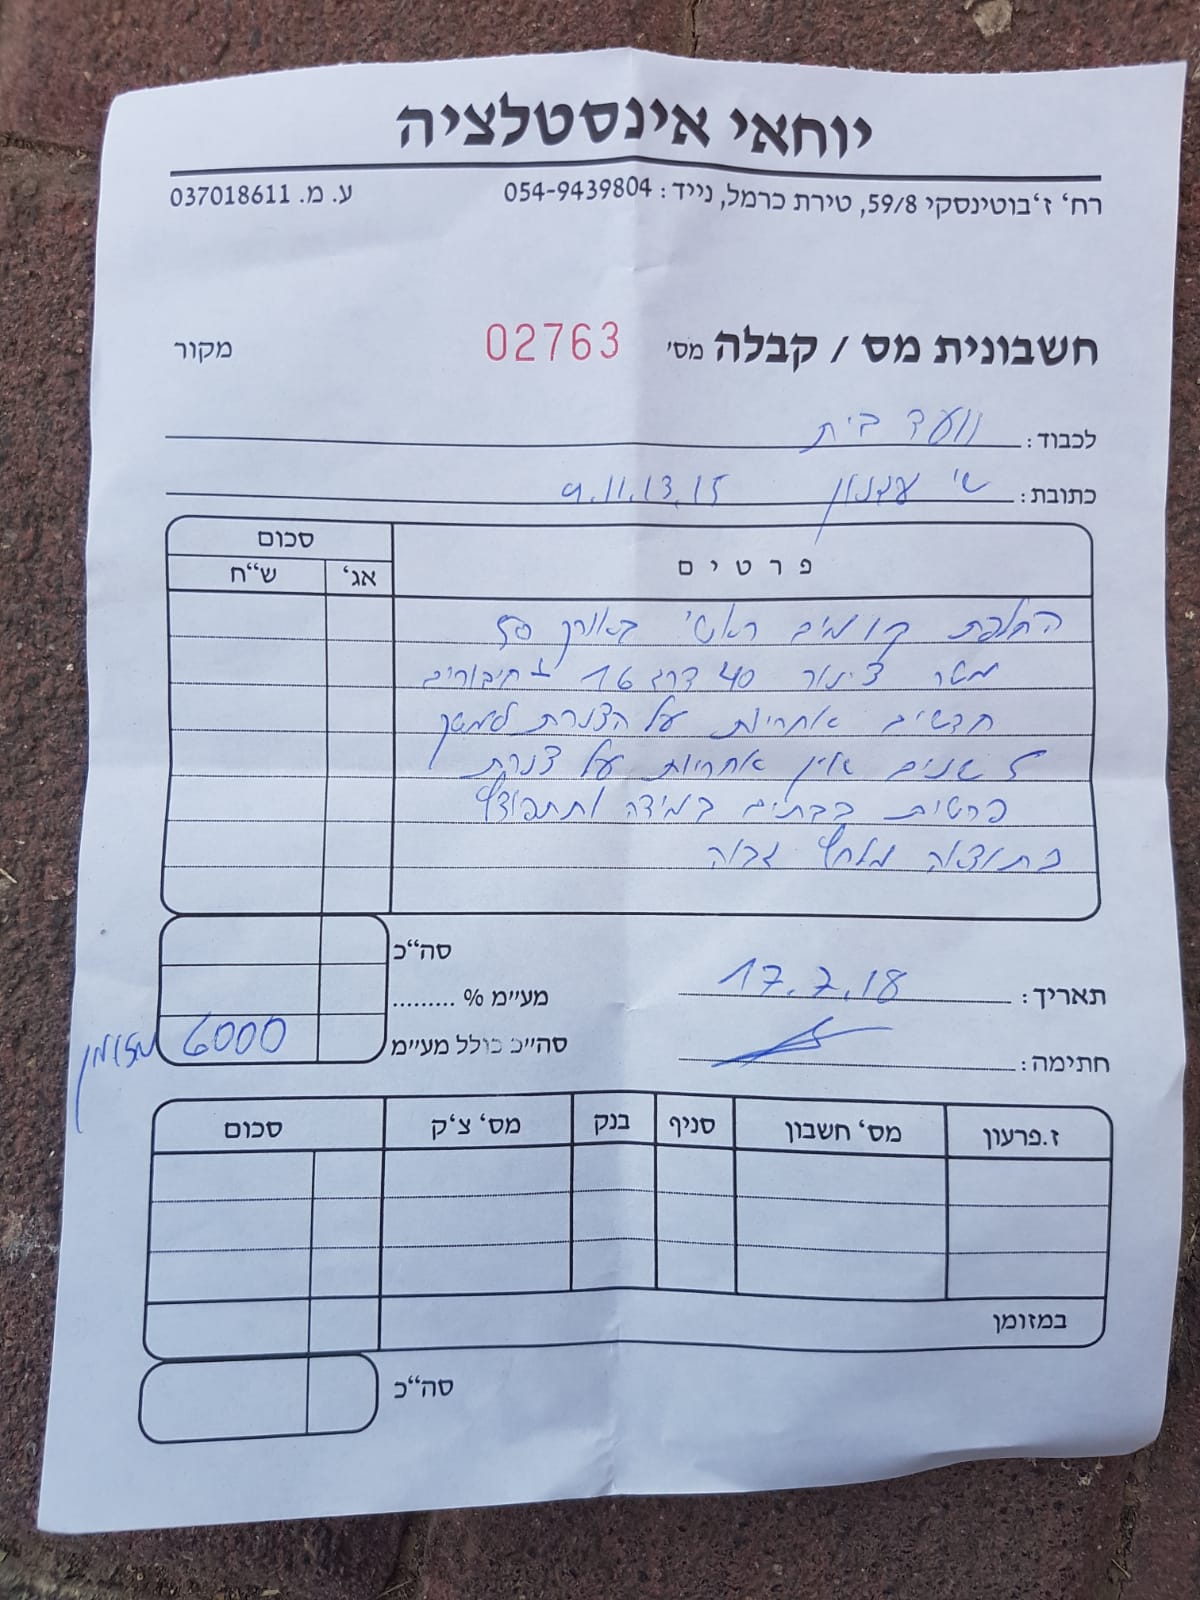 יוחאי אינסטלציה
רח' ז'בוטינסקי 59/8, טירת כרמל, נייד: 054-9439804 ע. מ. 037018611
חשבונית מס / קבלה מס' 02763 מקור
לכבוד: וועד בית
כתובת: ש' עגנון 9.11.13.15
פרטים סכום
אג' ש"ח
החלפת קו מים ראשי באורך 50
מטר צינור 40 דרג 16 + חיבורים
חדשים אחריות על הצנרת למשך
5 שנים אין אחריות על צנרת
פרטית בבתים במידה ותתפוצץ
כתוצאה מלחץ גבוה
סה"כ
תאריך: 17.7.18
מע"מ % .........
סה"כ כולל מע"מ 6000 מזומן
חתימה:
ז.פרעון מס' חשבון סניף בנק מס' צ'ק סכום
במזומן
סה"כ